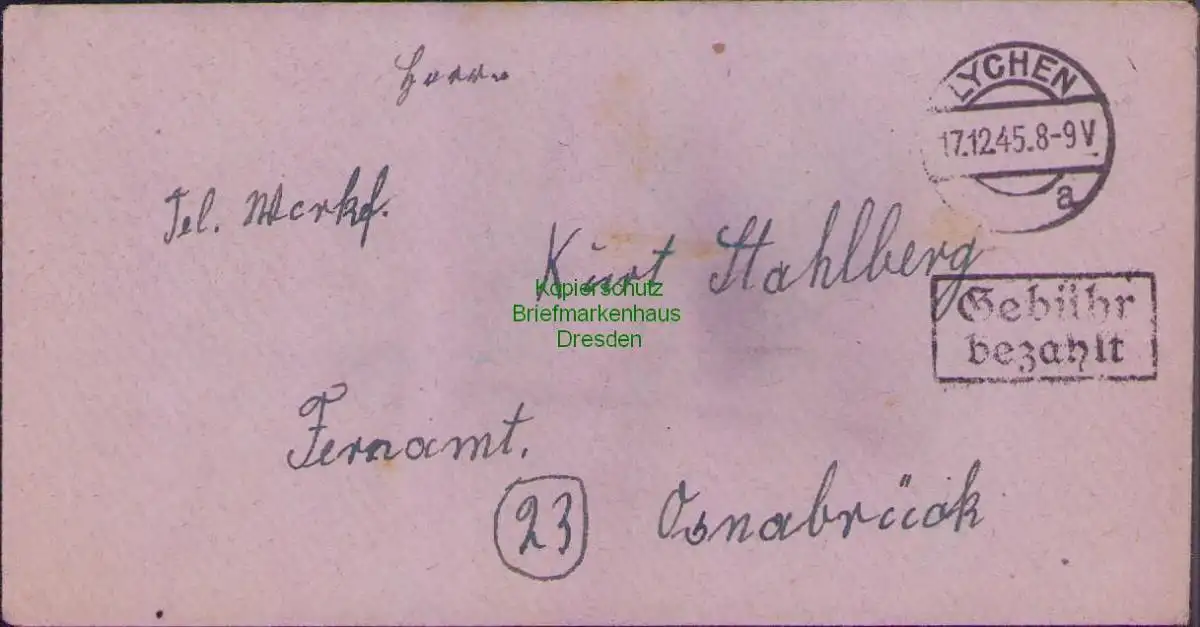 Herrn
LYCHEN
17.12.45.8-9V
a
Tel. Werkf.
Kurt Stahlberg
Kopierschutz
Briefmarkenhaus
Dresden
Gebühr
bezahlt
Fernamt.
23 Osnabrück